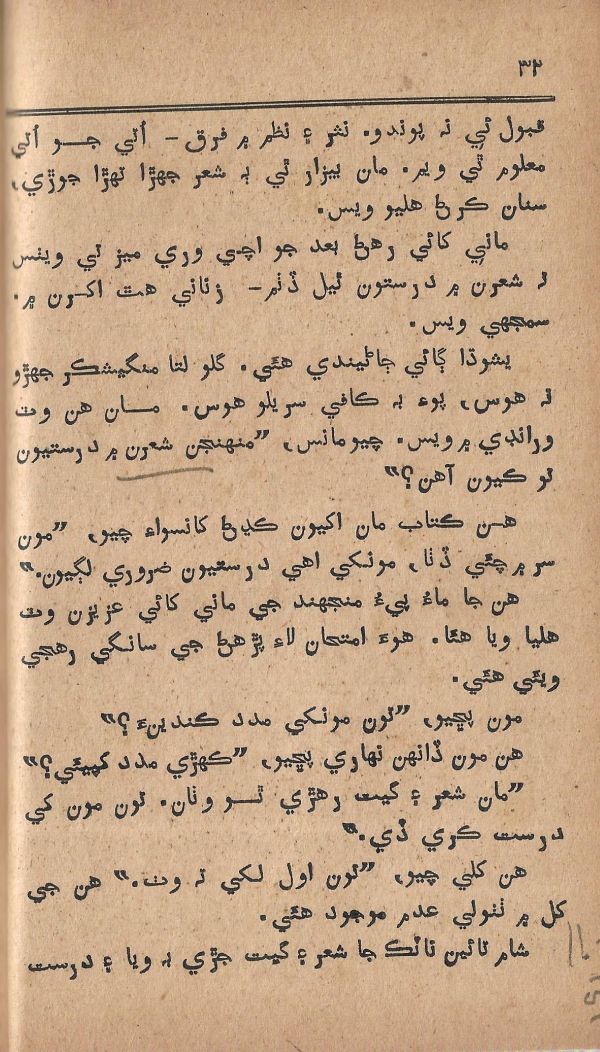 ٣٢
قبول ئي نہ پوندو. نثر ۽ نظم ۾ فرق - اُتي جــو اُتي
معلوم ٿي ويم. مان بيزار ٿي ٻہ شعر جهڙا تهڙا جوڙي،
سنان ڪرڻ هليو ويس.
ماني کائي رهڻ بعد جو اچي وري ميز تي ويٺس
تہ شعرن ۾ درستون ٿيل ڏٺم - زناني هٿ اکرن ۾.
سمجهي ويس.
يشوڌا ڳائي ڄاڻيندي هئي. گلو لتا منگيشڪر جهڙو
نہ هوس، پوءِ بہ ڪافي سريلو هوس. مــان هن وٽ
ورانڊي ۾ ويس. چيومانس، ”منهنجن شعرن ۾ درستيون
تو ڪيون آهن؟“
هــن ڪتاب مان اکيون کڻڻ کانسواءِ چيو، ”مون
سر ۾ چئي ڏٺا، مونکي اهي درستيون ضروري لڳيون.“
هن جا ماءُ پيءُ منجهند جي ماني کائي عزيزن وٽ
هليا ويا هئا. هوءَ امتحان لاءِ پڙهڻ جي سانگي رهجي
ويئي هئي.
مون پڇيو، ”تون مونکي مدد ڪندينءَ؟“
هن مون ڏانهن نهاري پڇيو، ”ڪهڙي مدد کپيئي؟“
”مان شعر ۽ گيت رهڙي ٿــو وٺان. تون مون کي
درست ڪري ڏي.“
هن کلي چيو، ”تون اول لکي تہ وٺ.“ هن جي
کل ۾ ٺٺولي عدم موجود هئي.
شام تائين ناٽڪ جا شعر ۽ گيت جڙي بہ ويا ۽ درست